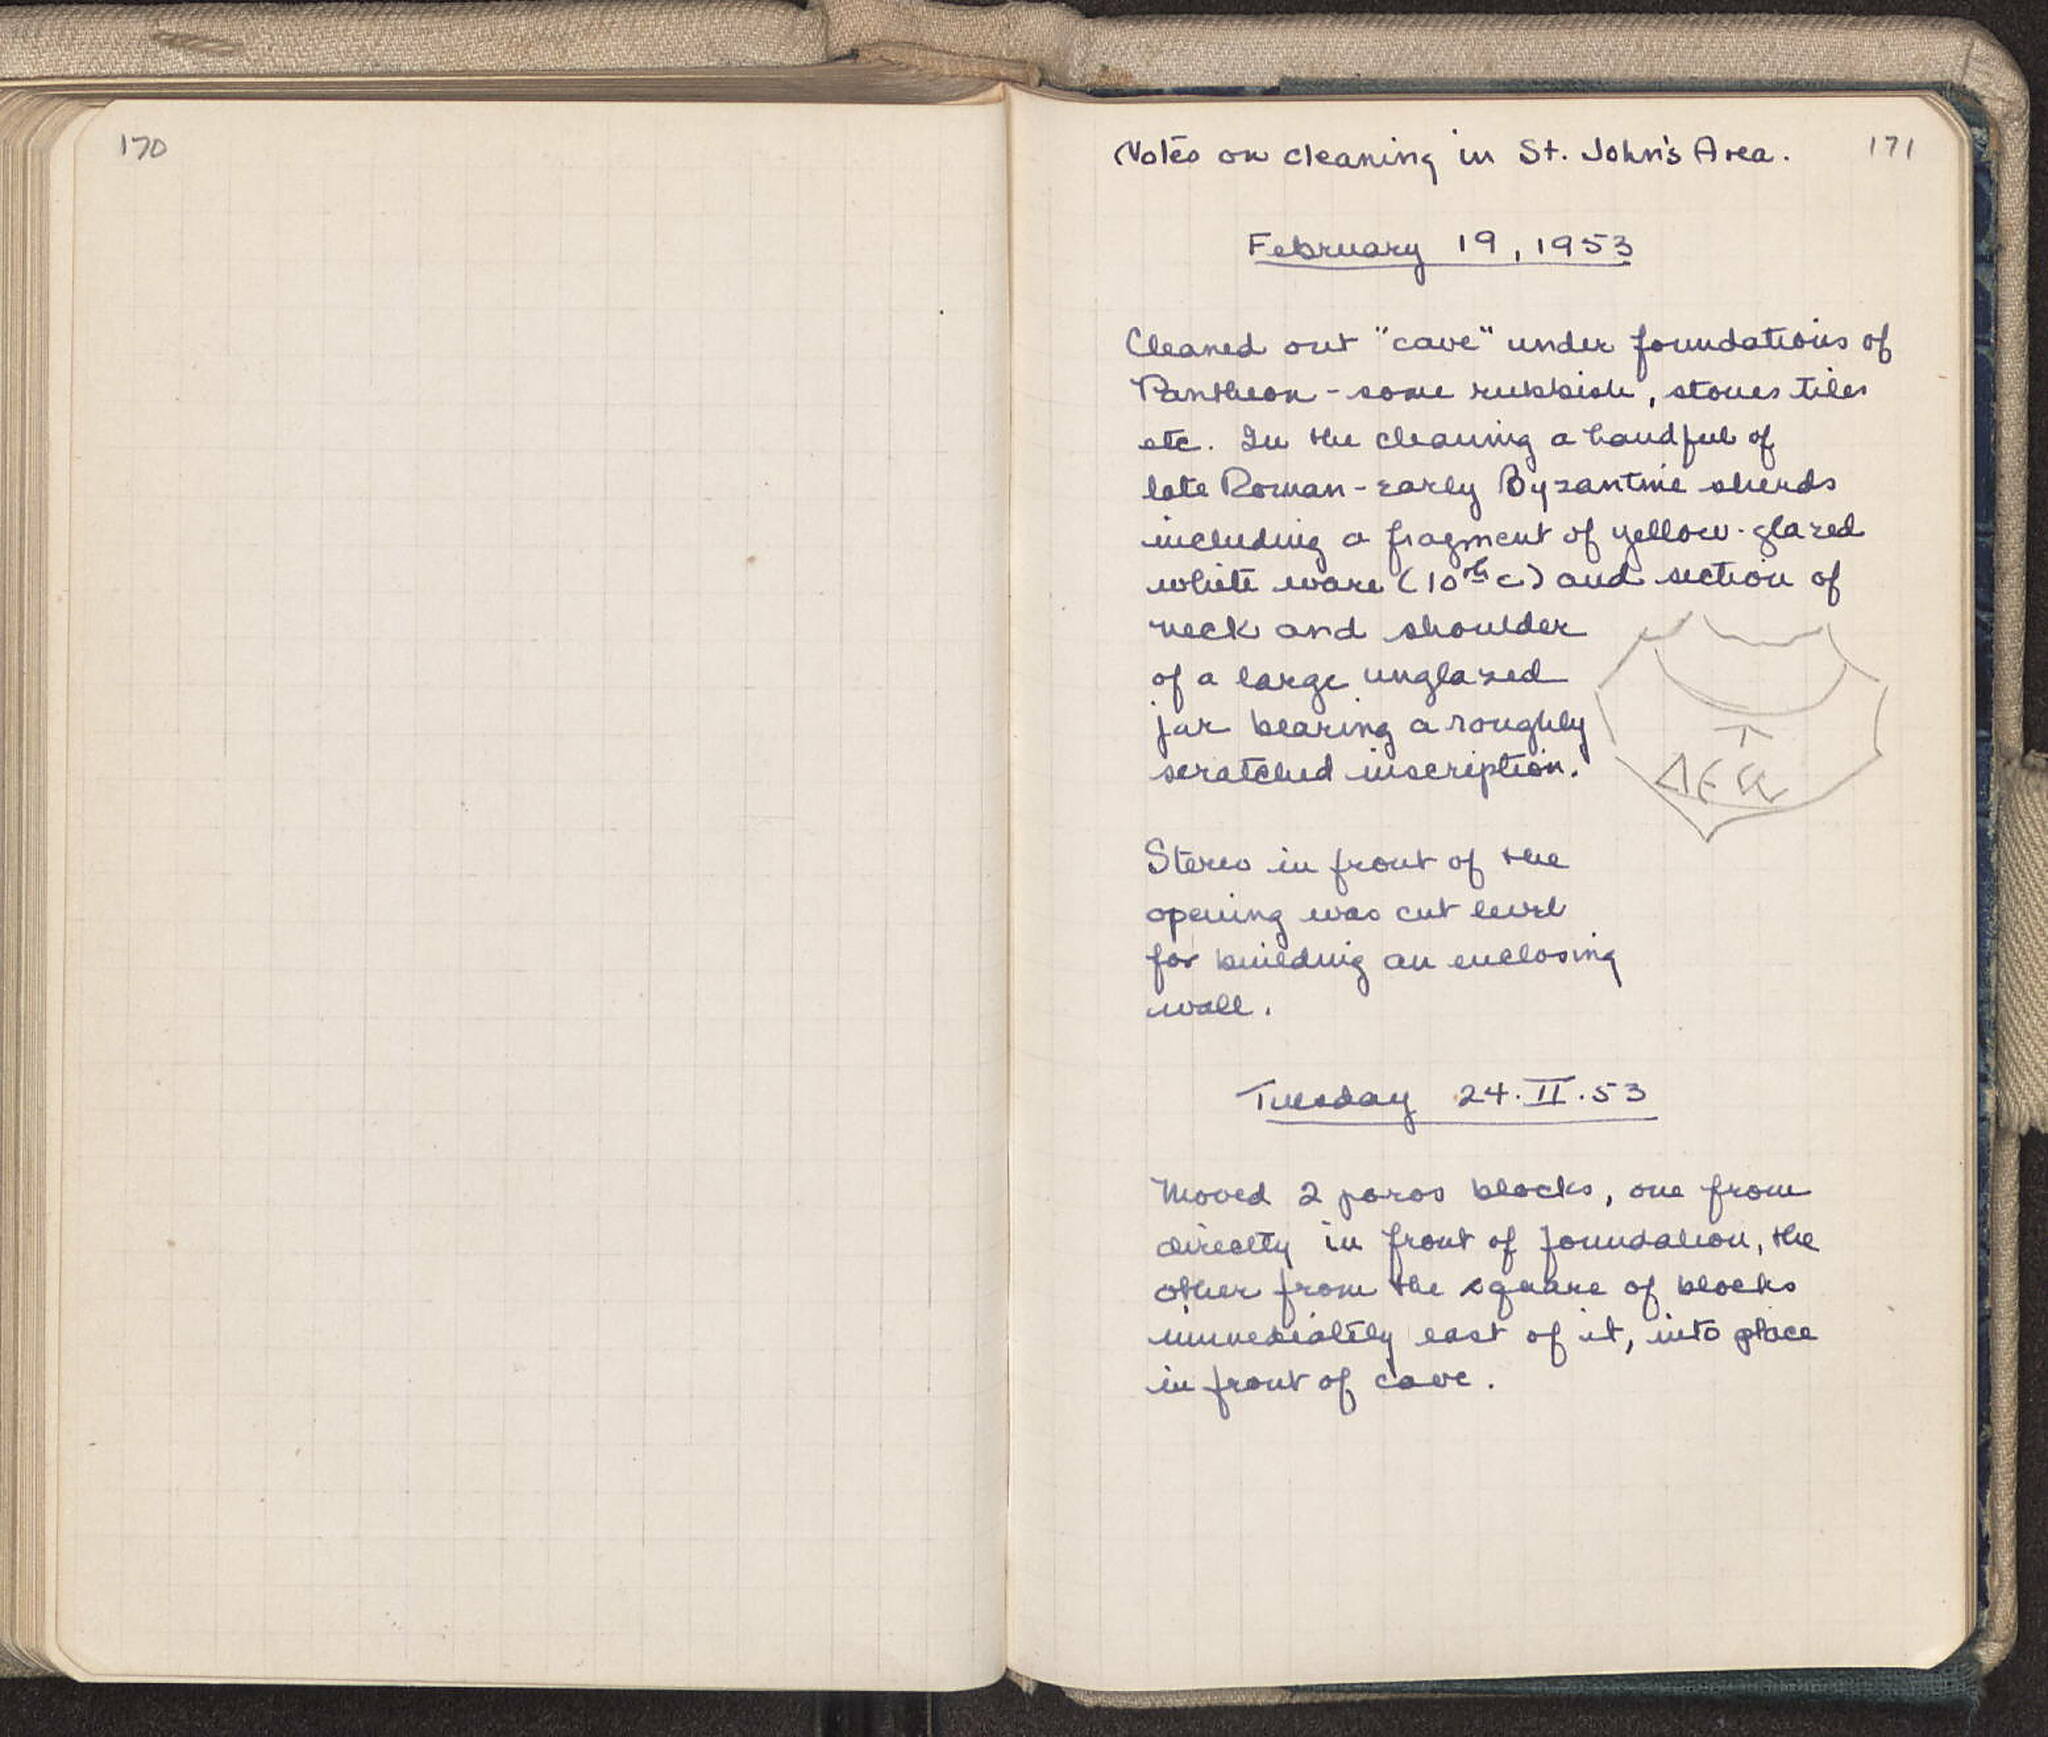 170
Notes on cleaning in St. John's Area.
171
February 19, 1953
Cleaned out "cave" under foundations of
Pantheon - some rubbish, stones tiles
etc. In the cleaning a handful of
late Roman - early Byzantine sherds
including a fragment of yellow-glazed
white ware (10th c) and section of
neck and shoulder
of a large unglazed
jar bearing a roughly
scratched inscription.
Stereo in front of the
opening was cut level
for building an enclosing
wall.
Tuesday 24.II.53
Moved 2 poros blocks, one from
directly in front of foundation, the
other from the square of blocks
immediately east of it, into place
in front of cave.